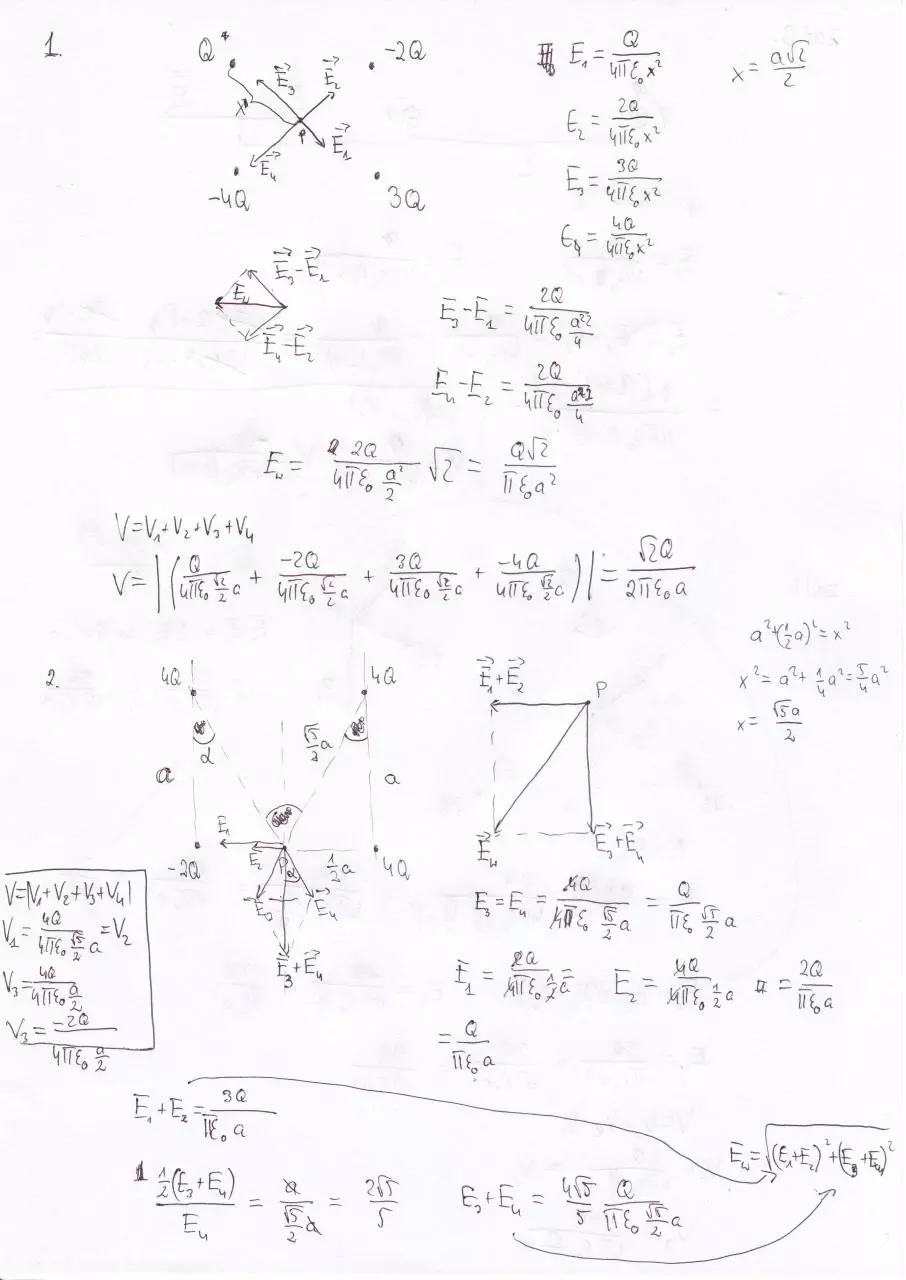 1.
Q
-2Q
E₃
E₂
x
P
E₁
E₄
-4Q
3Q
E₁ = Q/(4πε₀x²)
x = a√2/2
E₂ = 2Q/(4πε₀x²)
E₃ = 3Q/(4πε₀x²)
E₄ = 4Q/(4πε₀x²)
E₃-E₁
E_w
E₄-E₂
E₃-E₁ = 2Q/(4πε₀ a²2/4)
E₄-E₂ = 2Q/(4πε₀ a²2/4)
E_w = 2Q/(4πε₀ a²/2) √2 = Q√2/(πε₀a²)
V=V₁+V₂+V₃+V₄
V=|(Q/(4πε₀ √2/2 a) + -2Q/(4πε₀ √2/2 a) + 3Q/(4πε₀ √2/2 a) + -4Q/(4πε₀ √2/2 a))| = √2Q/(2πε₀a)
a²+(½a)²=x²
x²=a²+¼a²=5/4a²
x= √5a/2
2.
4Q
4Q
α
√5/2 a
a
a
E₁
E₂
P
α
½a
-2Q
4Q
E₃
E₄
E₃+E₄
E₁+E₂
P
E_w
E₃+E₄
V=|V₁+V₂+V₃+V₄|
V₁= 4Q/(4πε₀ √5/2 a) =V₂
V₃= 4Q/(4πε₀ a/2)
V₃= -2Q/(4πε₀ a/2)
E₃=E₄= 4Q/(4πε₀ √5/2 a) = Q/(πε₀ √5/2 a)
E₁= 2Q/(4πε₀ ½a) E₂= 4Q/(4πε₀ ½a) = 2Q/(πε₀a)
= Q/(πε₀a)
E₁+E₂= 3Q/(πε₀a)
E_w=√((E₁+E₂)²+(E₃+E₄)²)
½(E₃+E₄)/E₄ = a/(√5/2 a) = 2√5/5
E₃+E₄ = 4√5/5 Q/(πε₀ √5/2 a)